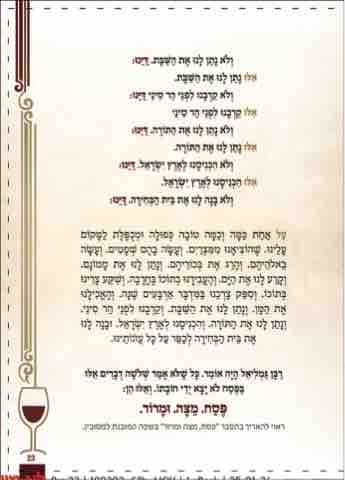 וְלֹא נָתַן לָנוּ אֶת הַשַּׁבָּת. דַּיֵּנוּ:
אִלּוּ נָתַן לָנוּ אֶת הַשַּׁבָּת.
וְלֹא קֵרְבָנוּ לִפְנֵי הַר סִינַי דַּיֵּנוּ:
אִלּוּ קֵרְבָנוּ לִפְנֵי הַר סִינַי
וְלֹא נָתַן לָנוּ אֶת הַתּוֹרָה. דַּיֵּנוּ:
אִלּוּ נָתַן לָנוּ אֶת הַתּוֹרָה.
וְלֹא הִכְנִיסָנוּ לְאֶרֶץ יִשְׂרָאֵל. דַּיֵּנוּ:
אִלּוּ הִכְנִיסָנוּ לְאֶרֶץ יִשְׂרָאֵל.
וְלֹא בָנָה לָנוּ אֶת בֵּית הַבְּחִירָה. דַּיֵּנוּ:
עַל אַחַת כַּמָּה וְכַמָּה טוֹבָה כְּפוּלָה וּמְכֻפֶּלֶת לַמָּקוֹם
עָלֵינוּ. שֶׁהוֹצִיאָנוּ מִמִּצְרַיִם. וְעָשָׂה בָהֶם שְׁפָטִים. וְעָשָׂה
בֵאלֹהֵיהֶם. וְהָרַג אֶת בְּכוֹרֵיהֶם. וְנָתַן לָנוּ אֶת מָמוֹנָם.
וְקָרַע לָנוּ אֶת הַיָּם. וְהֶעֱבִירָנוּ בְתוֹכוֹ בֶּחָרָבָה. וְשִׁקַּע צָרֵינוּ
בְּתוֹכוֹ. וְסִפֵּק צָרְכֵנוּ בַּמִּדְבָּר אַרְבָּעִים שָׁנָה. וְהֶאֱכִילָנוּ
אֶת הַמָּן. וְנָתַן לָנוּ אֶת הַשַּׁבָּת. וְקֵרְבָנוּ לִפְנֵי הַר סִינַי.
וְנָתַן לָנוּ אֶת הַתּוֹרָה. וְהִכְנִיסָנוּ לְאֶרֶץ יִשְׂרָאֵל. וּבָנָה לָנוּ
אֶת בֵּית הַבְּחִירָה לְכַפֵּר עַל כָּל עֲוֹנוֹתֵינוּ.
רַבָּן גַּמְלִיאֵל הָיָה אוֹמֵר. כָּל שֶׁלֹּא אָמַר שְׁלֹשָׁה דְבָרִים אֵלּוּ
בַּפֶּסַח לֹא יָצָא יְדֵי חוֹבָתוֹ. וְאֵלּוּ הֵן:
פֶּסַח. מַצָּה. וּמָרוֹר.
ראוי להאריך בהסבר "פסח, מצה ומרור" בשפה המובנת למסובין.
23